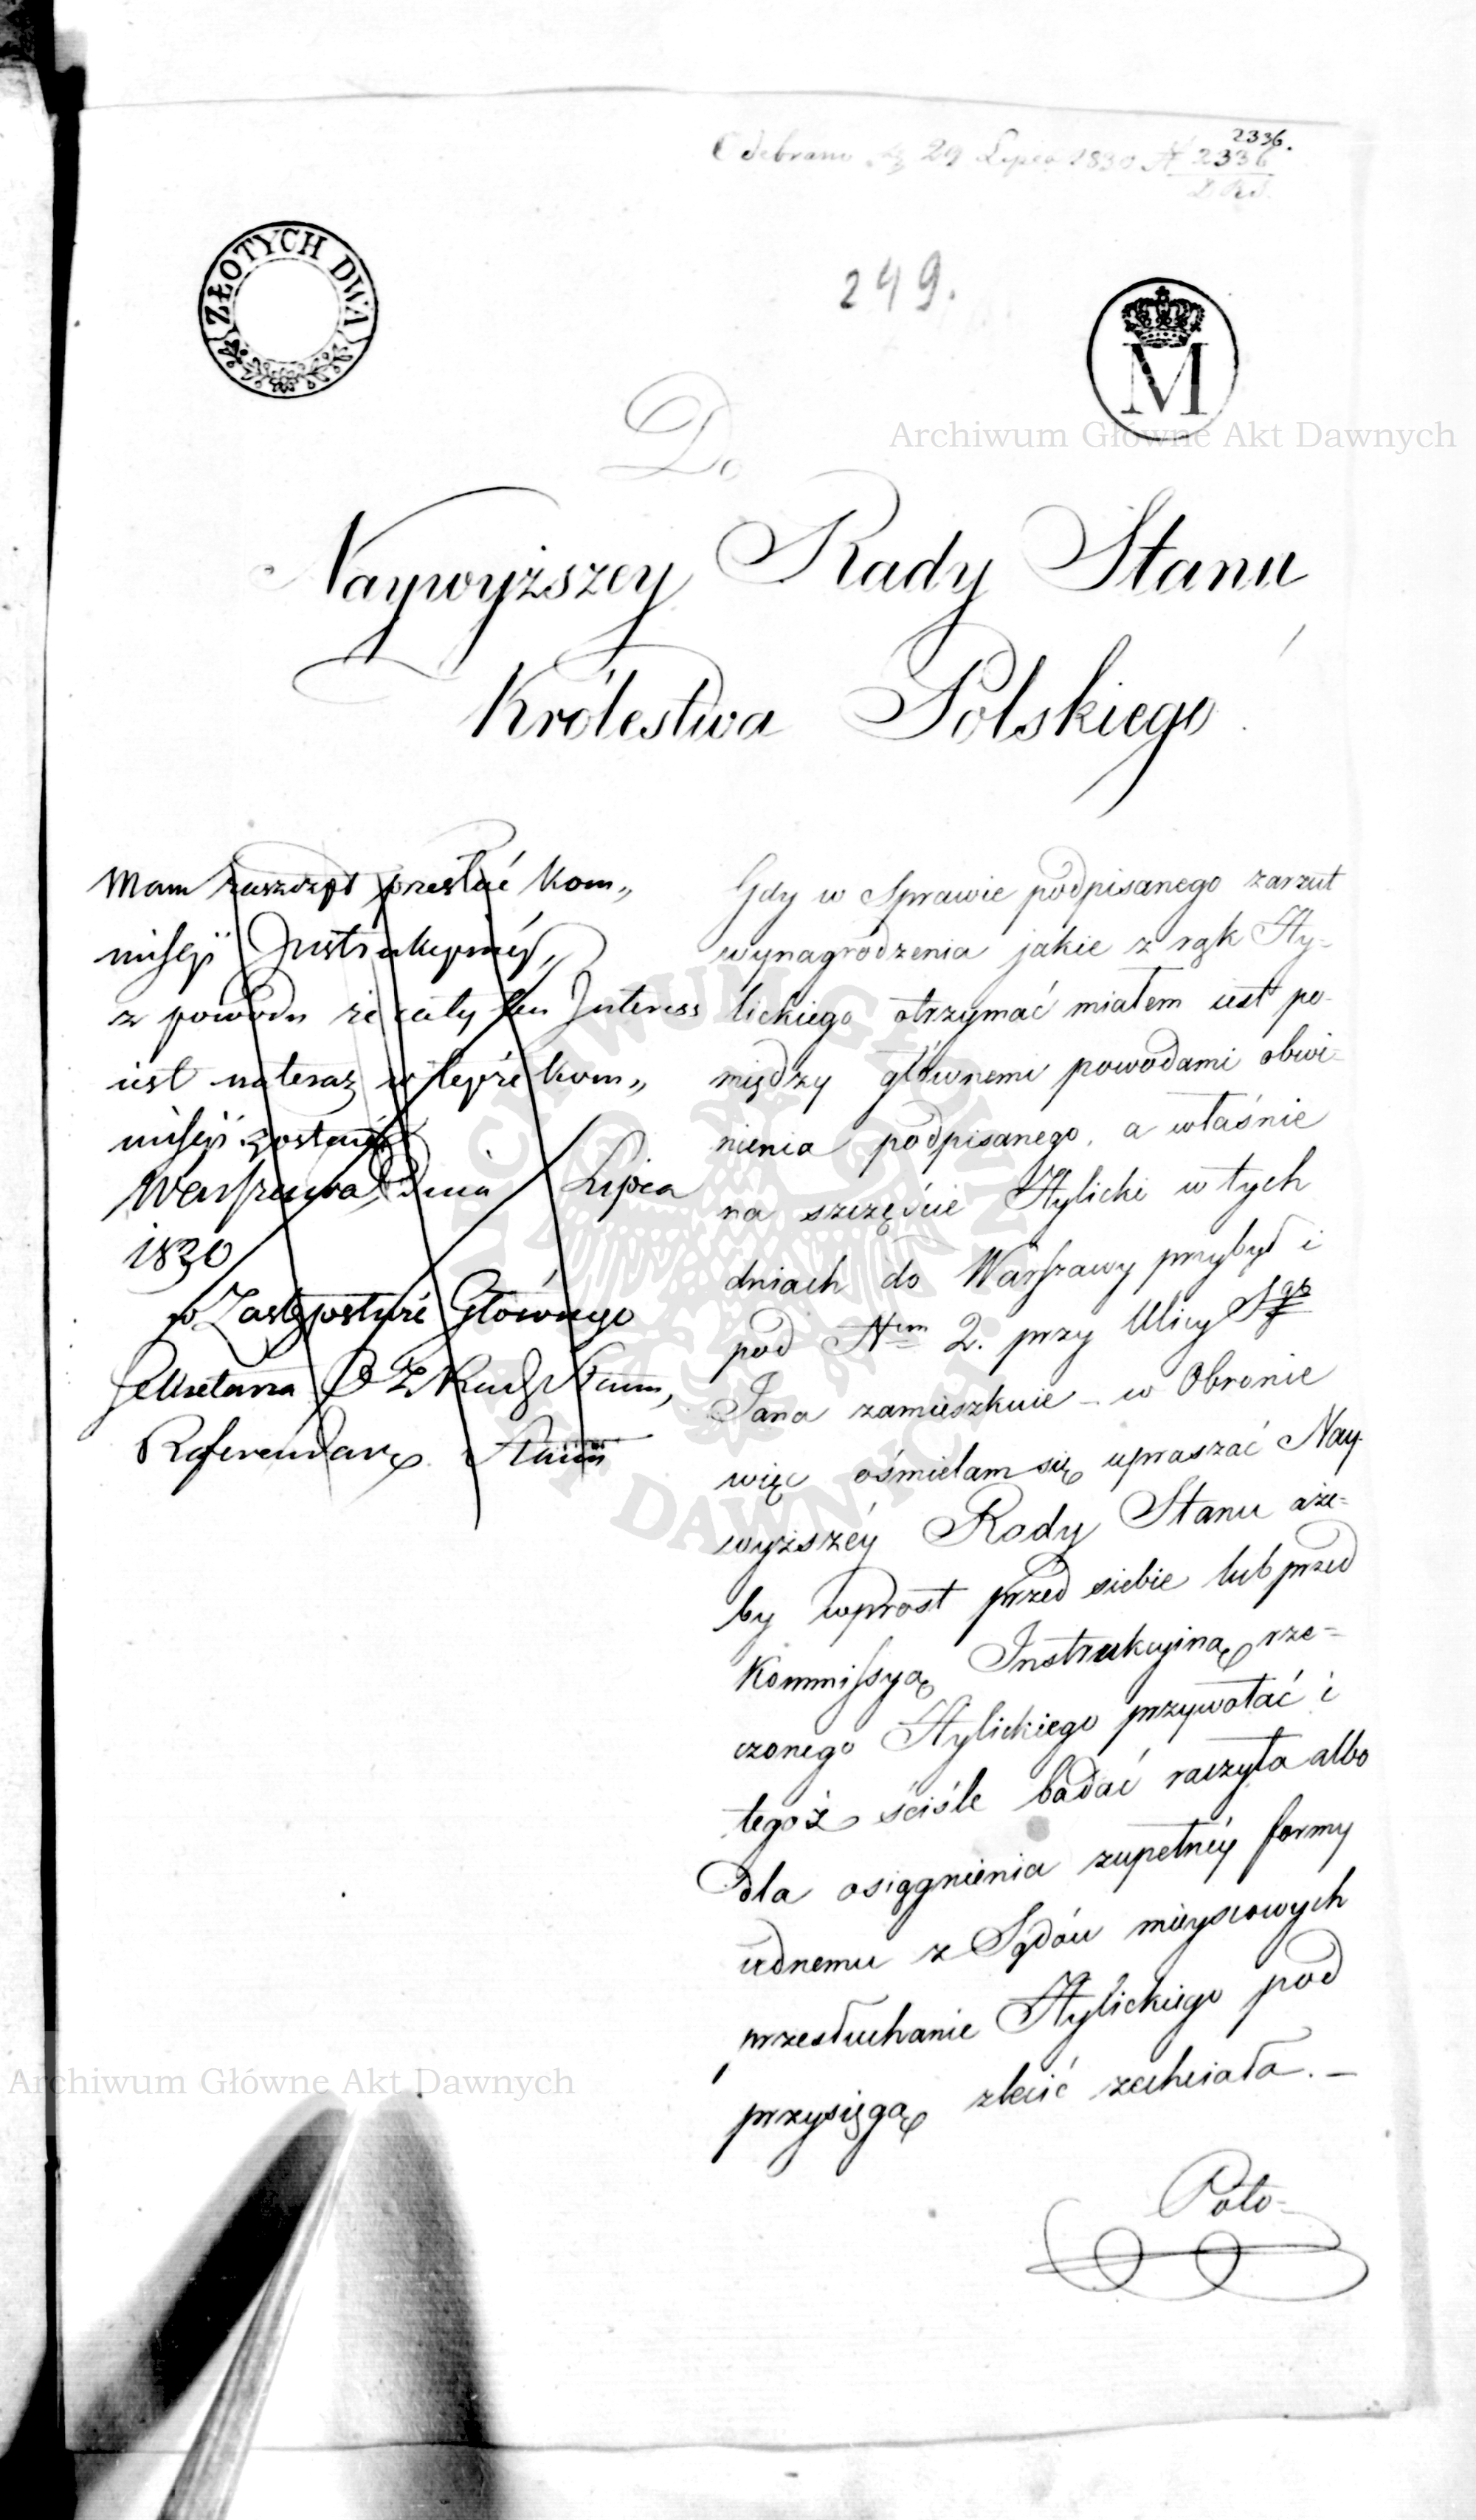 2336.
Odebrano 29 Lipca 1830 N 2336
ZŁOTYCH DWA
249.
M
Archiwum Główne Akt Dawnych
Do
Naywyższey Rady Stanu
Królestwa Polskiego
Mam zaszczyt przesłać Kom„
missyi Instrukcyinéy,
z powodu że cały ten Interess
iest na teraz w teyże Kom„
missyi
Warszawa Dnia Lipca
1830
w Zastępstwie Głównego
Sekretarza Rady Stanu,
Referendarz Stanu
Gdy w Sprawie podpisanego zarzut
wynagrodzenia jakie z rąk Hy-
lickiego otrzymać miałem iest po-
między głównemi powodami obwi-
nienia podpisanego, a właśnie
na szczęście Hylicki w tych
dniach do Warszawy przybył i
pod Nrem 2. przy Ulicy Sgo
Jana zamieszkuie – w Obronie
więc ośmielam się upraszać Nay-
wyższéy Rady Stanu aże-
by wprost przed siebie lub przed
Kommissyą Instrukcyiną rze-
czonego Hylickiego przywołać i
tegoż ściśle badać raczyła albo
dla osiągnienia zupełnéy formy
iednemu z Sądów mieyscowych
przesłuchanie Hylickiego pod
przysięgą zlecić zechciała. –
Poto-
Archiwum Główne Akt Dawnych
ARCHIWUM GŁÓWNE AKT DAWNYCH